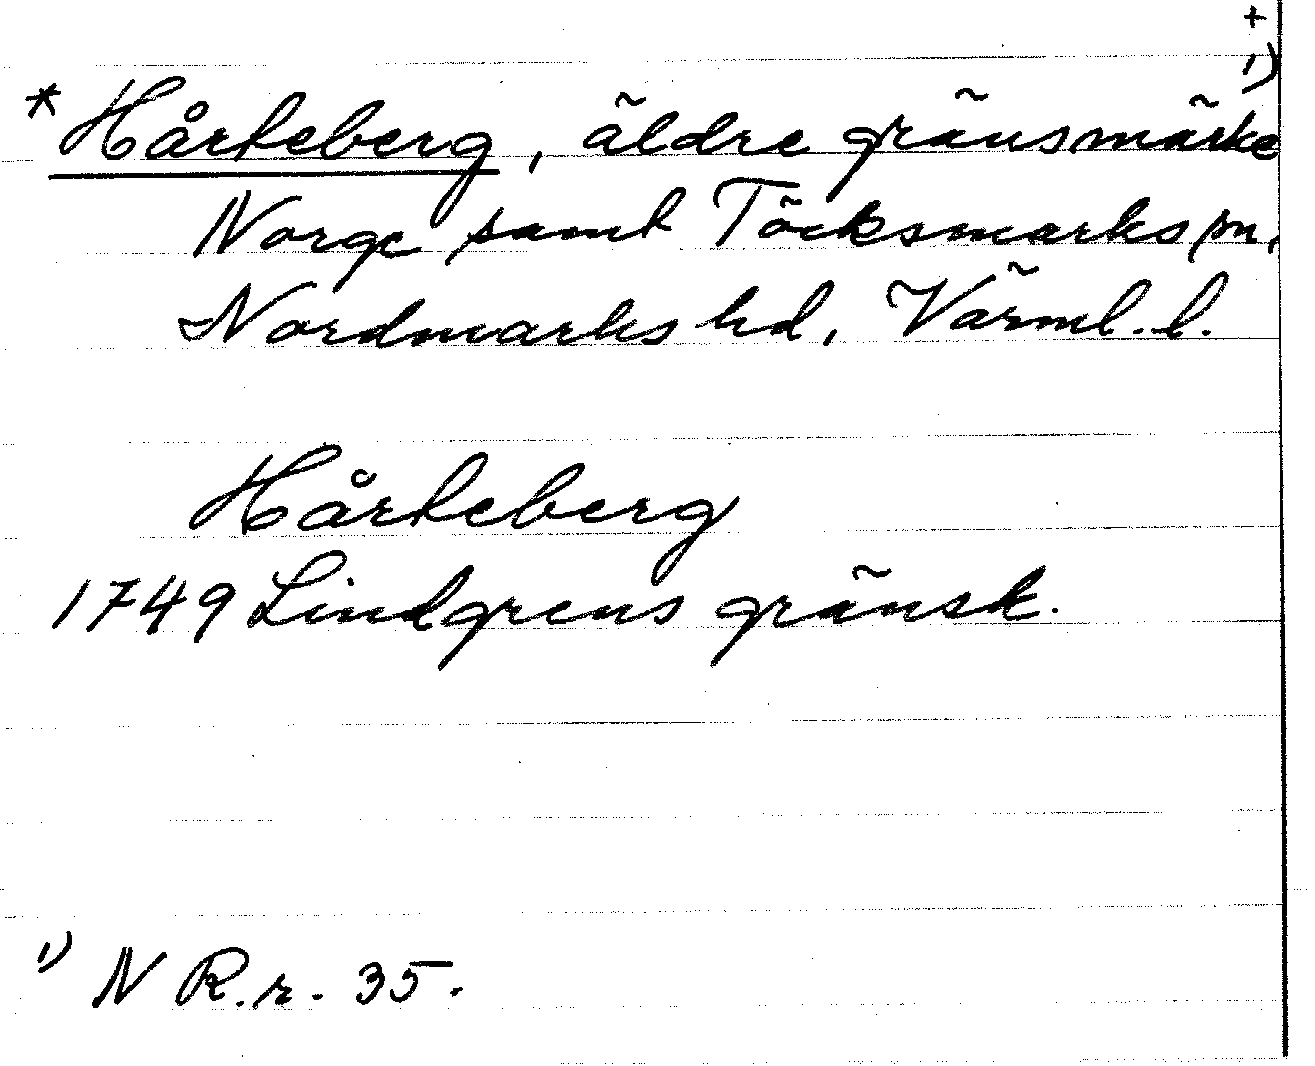 +
* Hårteberg, äldre gränsmärke 1)
Norge samt Töcksmarks sn,
Nordmarks hd, Värml. l.
Hårteberg
1749 Lindgrens gränsk.
1) N R.r. 35.